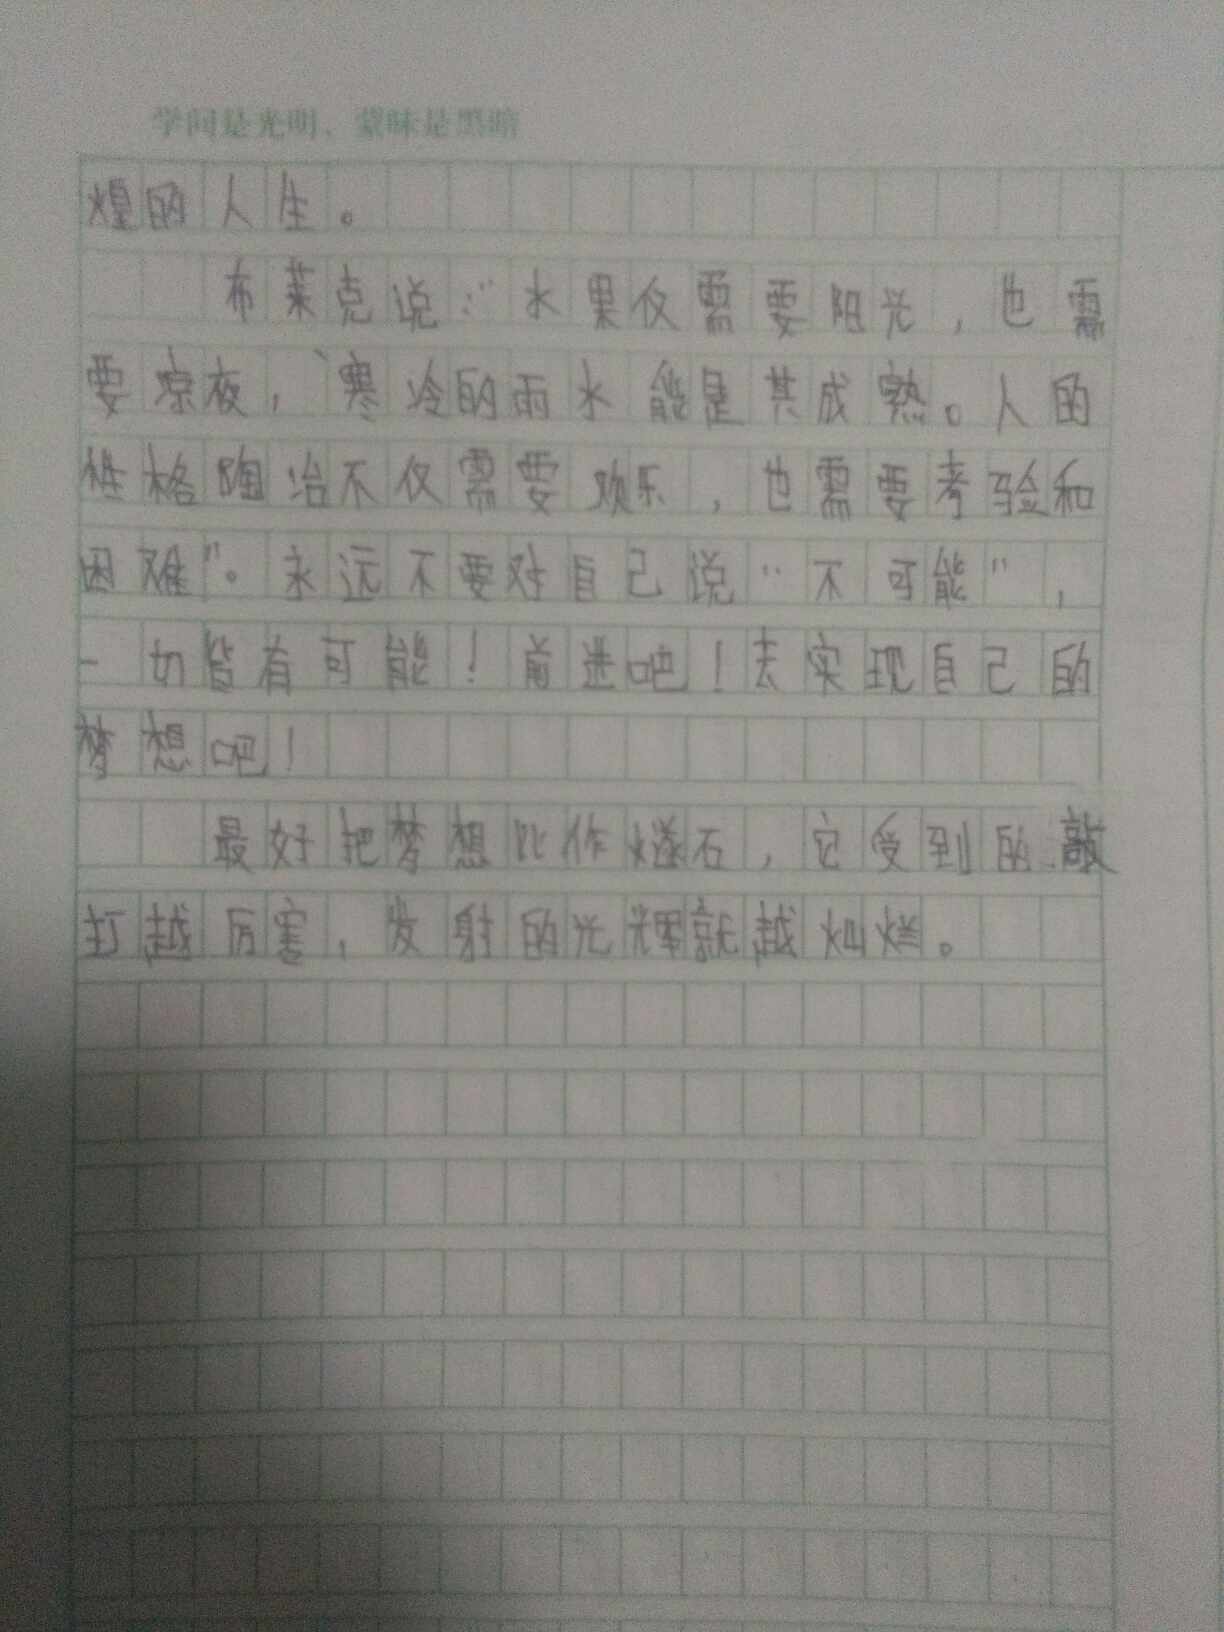 学问是光明、蒙昧是黑暗
煌的人生。
布莱克说:“水果仅需要阳光,也需
要凉夜,寒冷的雨水能是其成熟。人的
性格陶冶不仅需要欢乐,也需要考验和
困难”。永远不要对自己说“不可能”,
一切皆有可能!前进吧!去实现自己的
梦想吧!
最好把梦想比作燧石,它受到的敲
打越厉害,发射的光辉就越灿烂。